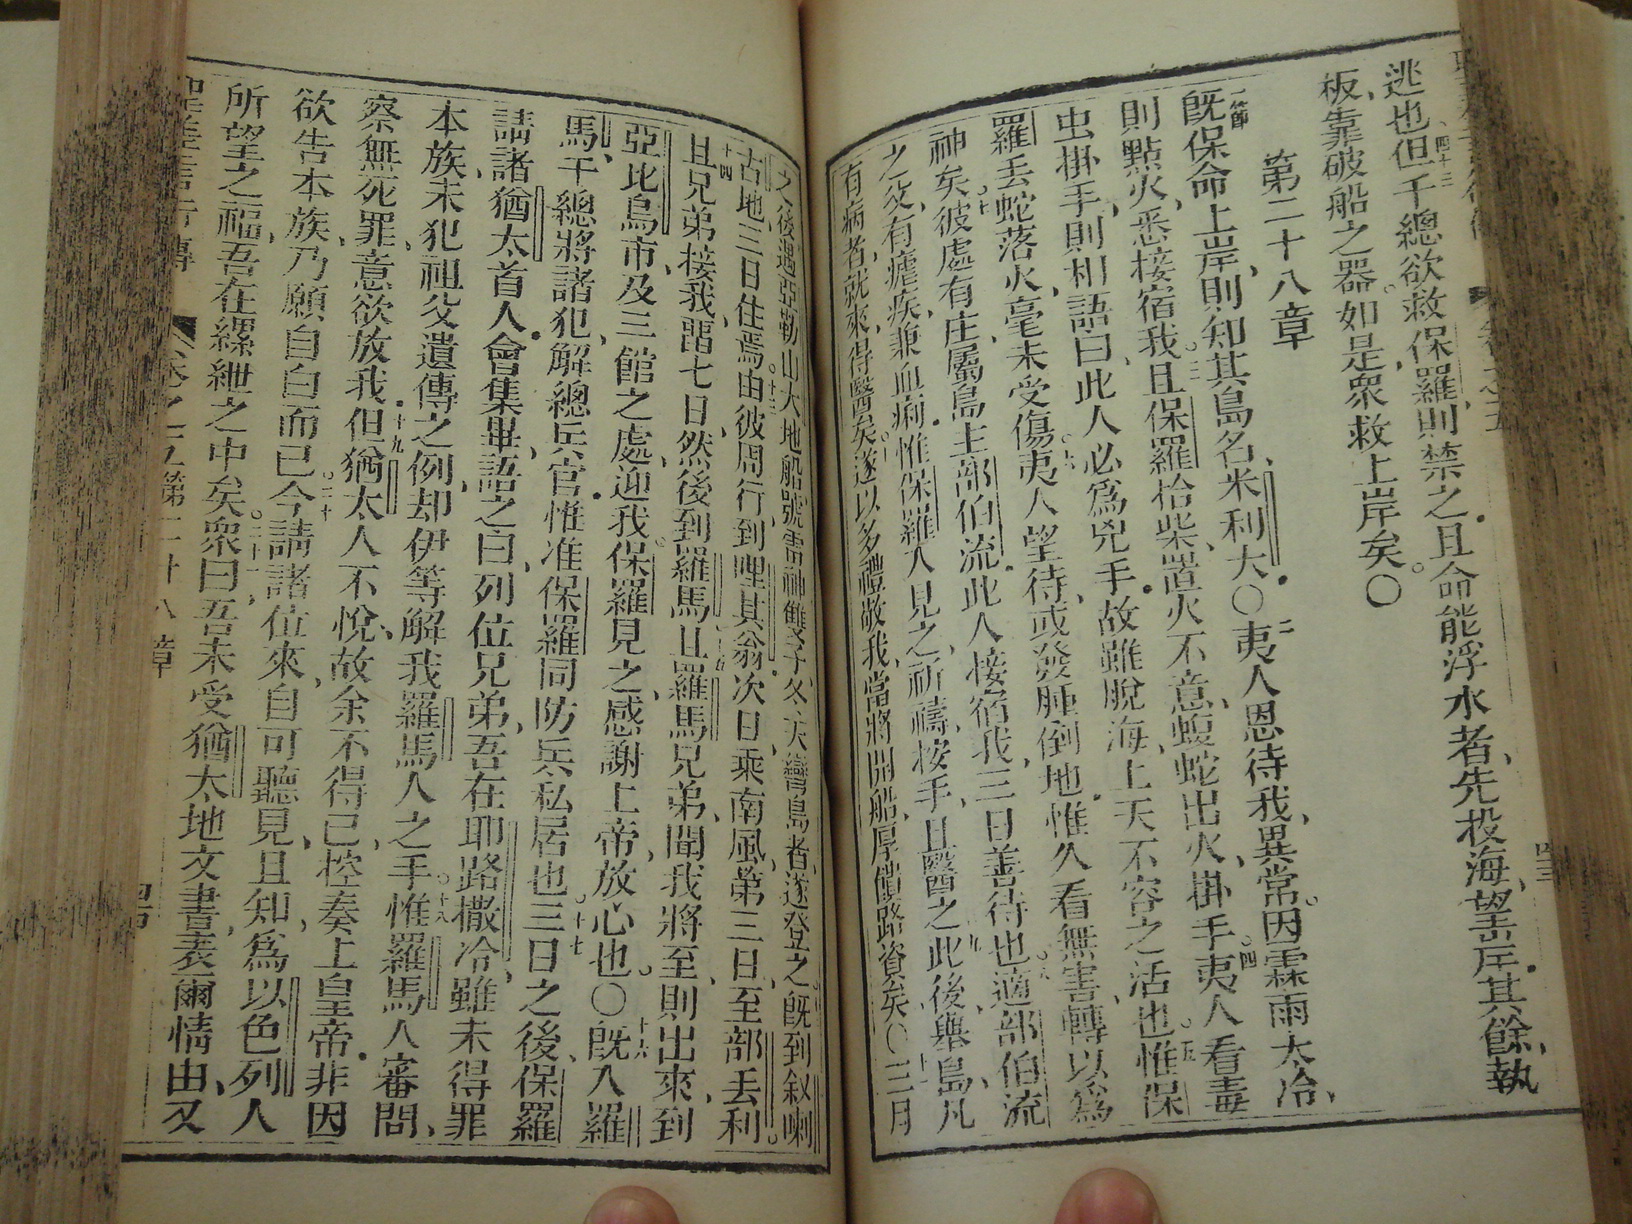 逃也四十三但千總欲救保羅則禁之且命能浮水者先投海望岸其餘執
板靠破船之器如是眾救上岸矣〇
第二十八章
一節既保命上岸則知其島名米利大〇二夷人恩待我異常因霖雨大冷
則點火悉接宿我三且保羅拾柴置火不意蝮蛇出火掛手四夷人看毒
虫掛手則相語曰此人必為兇手故雖脫海上天不容之活也五惟保
羅丟蛇落火毫未受傷六夷人望待或發腫倒地惟久看無害轉以為
神矣七彼處有庄屬島主部伯流此人接宿我三日善待也八適部伯流
之父有瘧疾兼血痢惟保羅入見之祈禱按手且醫之九此後舉島凡
有病者就來得醫矣十遂以多禮敬我當將開船厚饋路資矣〇十一三月
之後遇亞勒山大地船號雷神雙子冬于大灣島者遂登之既到叙喇
古地三日住焉十三由彼周行到哩其翁次日乘南風第三日至部丟利
十四且兄弟接我畱七日然後到羅馬十五且羅馬兄弟聞我將至則出來到
亞比烏市及三館之處迎我保羅見之感謝上帝放心也〇十六既入羅
馬千總將諸犯解總兵官惟准保羅同防兵私居也十七三日之後保羅
請諸猶太首人會集畢語之曰列位兄弟吾在耶路撒冷雖未得罪
本族未犯祖父遺傳之例却伊等解我羅馬人之手十八惟羅馬人審問
察無死罪意欲放我十九但猶太人不悅故余不得已控奏上皇帝非因
欲告本族乃願自白而已二十今請諸位來自可聽見且知為以色列人
所望之福吾在縲絏之中矣二十一眾曰吾未受猶太地文書表爾情由又
卷之五第二十八章